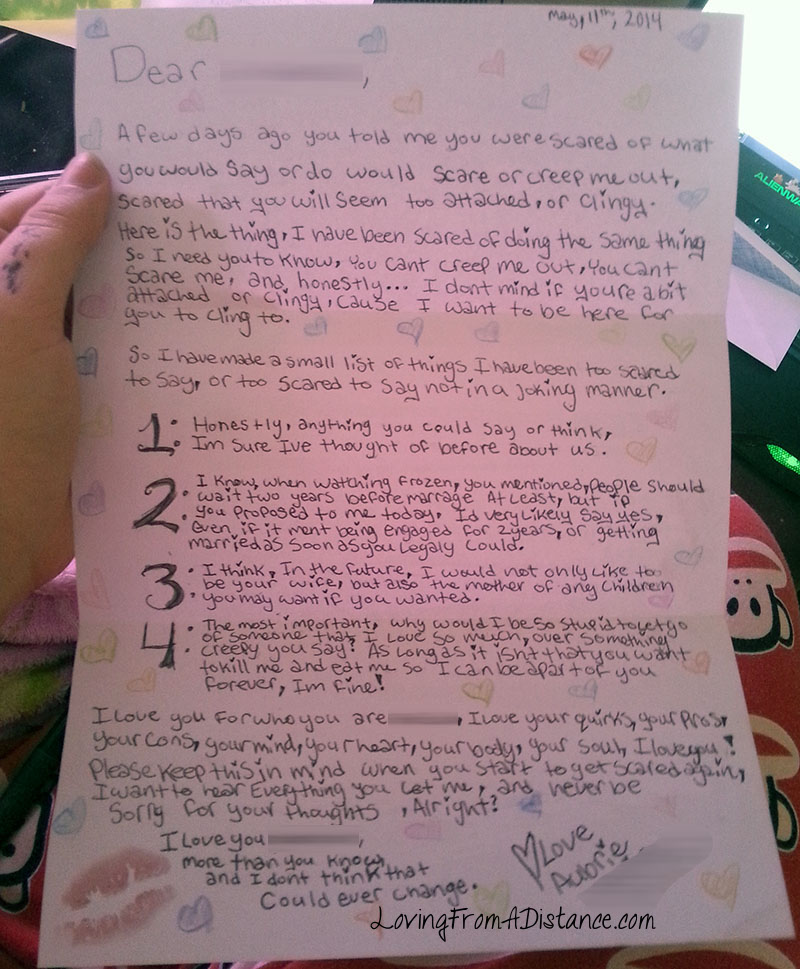 May, 11th, 2014
Dear ,
A few days ago you told me you were scared of what
you would say or do would scare or creep me out,
scared that you will seem too attached, or clingy.
Here is the thing, I have been scared of doing the same thing
so I need you to know, You cant creep me out, You cant
scare me, and honestly... I dont mind if youre a bit
attached or clingy, cause I want to be here for
you to cling to.
So I have made a small list of things I have been too scared
to say, or too scared to say not in a joking manner.
1. Honestly, anything you could say or think,
Im sure Ive thought of before about us.
2. I know, when watching frozen, you mentioned, people should
wait two years before marrage At least, but if
you proposed to me today, Id very likely say yes,
even if it ment being engaged for 2 years, or getting
married as soon as you legaly could.
3. I think, In the future, I would not only like to
be your wife, but also the mother of any children
you may want if you wanted.
4. The most important, why would I be so stupid to let go
of someone that I love so much, over something
creepy you say? As long as it isnt that you want
to kill me and eat me so I can be apart of you
forever, Im fine!
I love you for who you are , I love your quirks, your Pros,
your cons, your mind, your heart, your body, your soul, I love you!
Please keep this in mind when you start to get scared again,
I want to hear Everything you let me, and never be
Sorry for your thoughts, Alright?
I love you ,
more than you know,
and I dont think that
Could ever change.
Love
Autorie
ALIENWA
LovingFromADistance.com